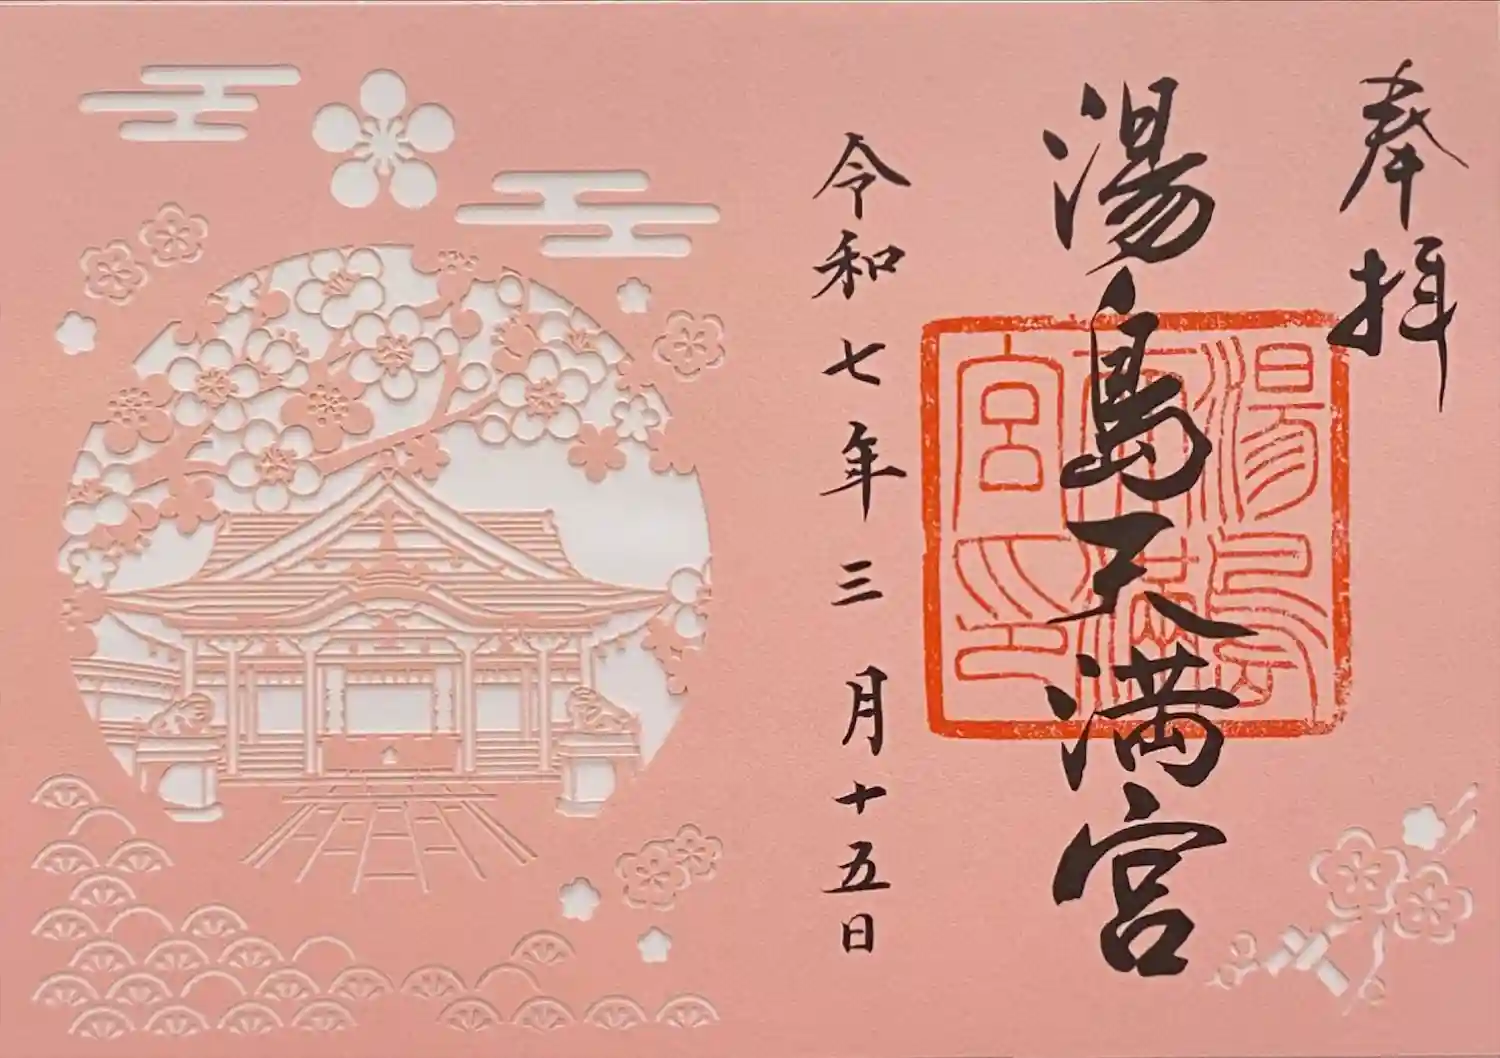 奉拝
湯島天満宮
湯島天満宮印
令和七年三月十五日